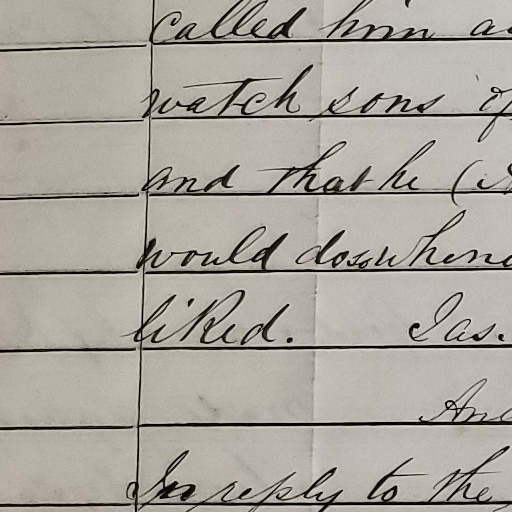 called him a
watch sons of
and that he (
would do so when
liked. Jas.
An
In reply to the